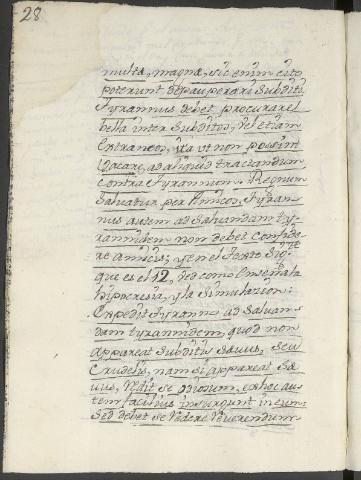 28
multa, magna, sic enim cito
poterunt depauperari Subditi
Tyrannus debet procurare
bella inter Subditos, vel etiam
Extraneos, ita ut non possint
Vacare, ad aliquid tractandum
contra Tyrannum. Regnum
Salvatur per Amicos, Tyran-
nus autem ad Salvandam ty-
rannidem non debet confide-
re amicis; y en el Texto Sig.te
que es el 12, dedo como Enseña la
hipocresia, y la Simulacion:
Expedit Tyranno ad Salvan-
dam tyrannidem, quod non
appareat Subditis Sævus, seu
Crudelis, nam si appareat Sæ
vus, Redit se odiosum, ex hoc au
tem facilius insurgunt in eum
Sed debet se Reddere Reverendum